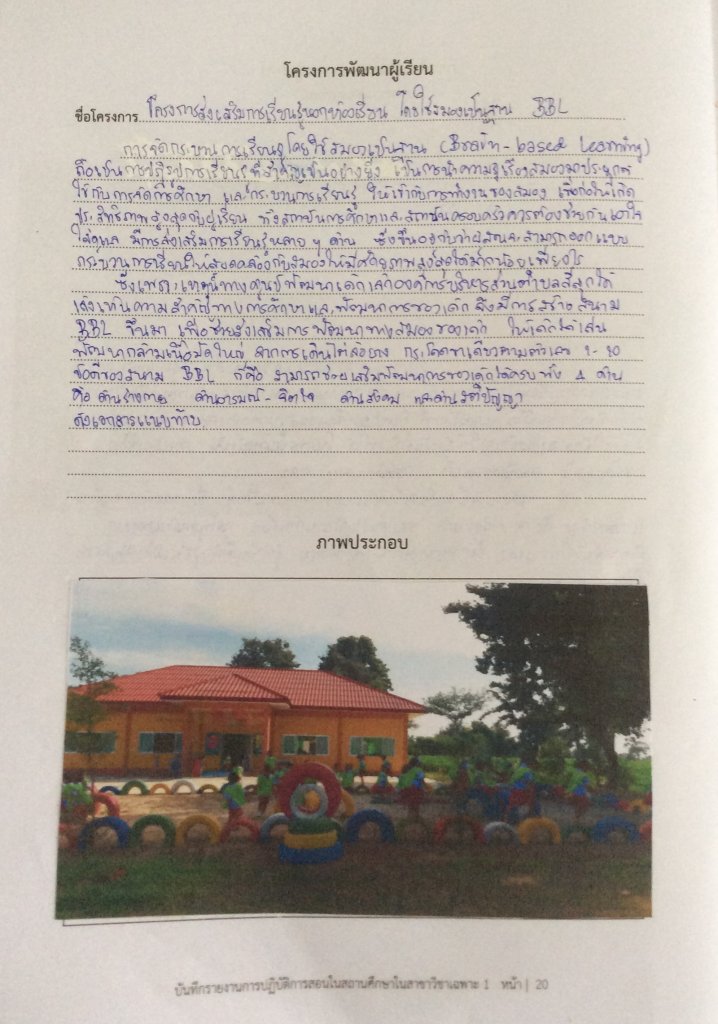 โครงการพัฒนาผู้เรียน
ชื่อโครงการ โครงการส่งเสริมการเรียนรู้นอกห้องเรียน โดยใช้สมองเป็นฐาน BBL
การจัดกระบวนการเรียนรู้โดยใช้สมองเป็นฐาน (Brain-based Learning)
ถือเป็นการปฏิรูปการเรียนรู้ที่สำคัญเป็นอย่างยิ่ง เป็นการนำความรู้เรื่องสมองมาประยุกต์
ใช้กับการจัดการศึกษา และกระบวนการเรียนรู้ ให้เข้ากับการทำงานของสมอง เพื่อก่อให้เกิด
ประสิทธิภาพสูงสุดกับผู้เรียน ทั้งสถาบันการศึกษาและสถาบันครอบครัวควรต้องช่วยกันเอาใจ
ใส่ดูแล มีการส่งเสริมการเรียนรู้หลาย ๆ ด้าน ซึ่งขึ้นอยู่กับว่าผู้สอนจะสามารถออกแบบ
กระบวนการเรียนให้สอดคล้องกับสมองให้มีศักยภาพสูงสุดได้มากน้อยเพียงไร
ซึ่งเพราะเหตุนี้ทางศูนย์พัฒนาเด็กเล็กองค์การบริหารส่วนตำบลสีสุกได้
เล็งเห็นความสำคัญทางการศึกษาและพัฒนาการของเด็ก จึงมีการสร้างสนาม
BBL ขึ้นมา เพื่อช่วยส่งเสริมการพัฒนาทางสมองของเด็ก ให้เด็กได้เล่น
พัฒนากล้ามเนื้อมัดใหญ่ จากการเดินไต่ล้อยาง กระโดดขาเดียวตามตัวเลข 1-10
ข้อดีของสนาม BBL ก็คือ สามารถช่วยเสริมพัฒนาการของเด็กได้ครบทั้ง 4 ด้าน
คือ ด้านร่างกาย ด้านอารมณ์-จิตใจ ด้านสังคม และด้านสติปัญญา
ดังเอกสารแนบท้าย
ภาพประกอบ
บันทึกรายงานการปฏิบัติการสอนในสถานศึกษาในสาขาวิชาเฉพาะ 1 หน้า | 20